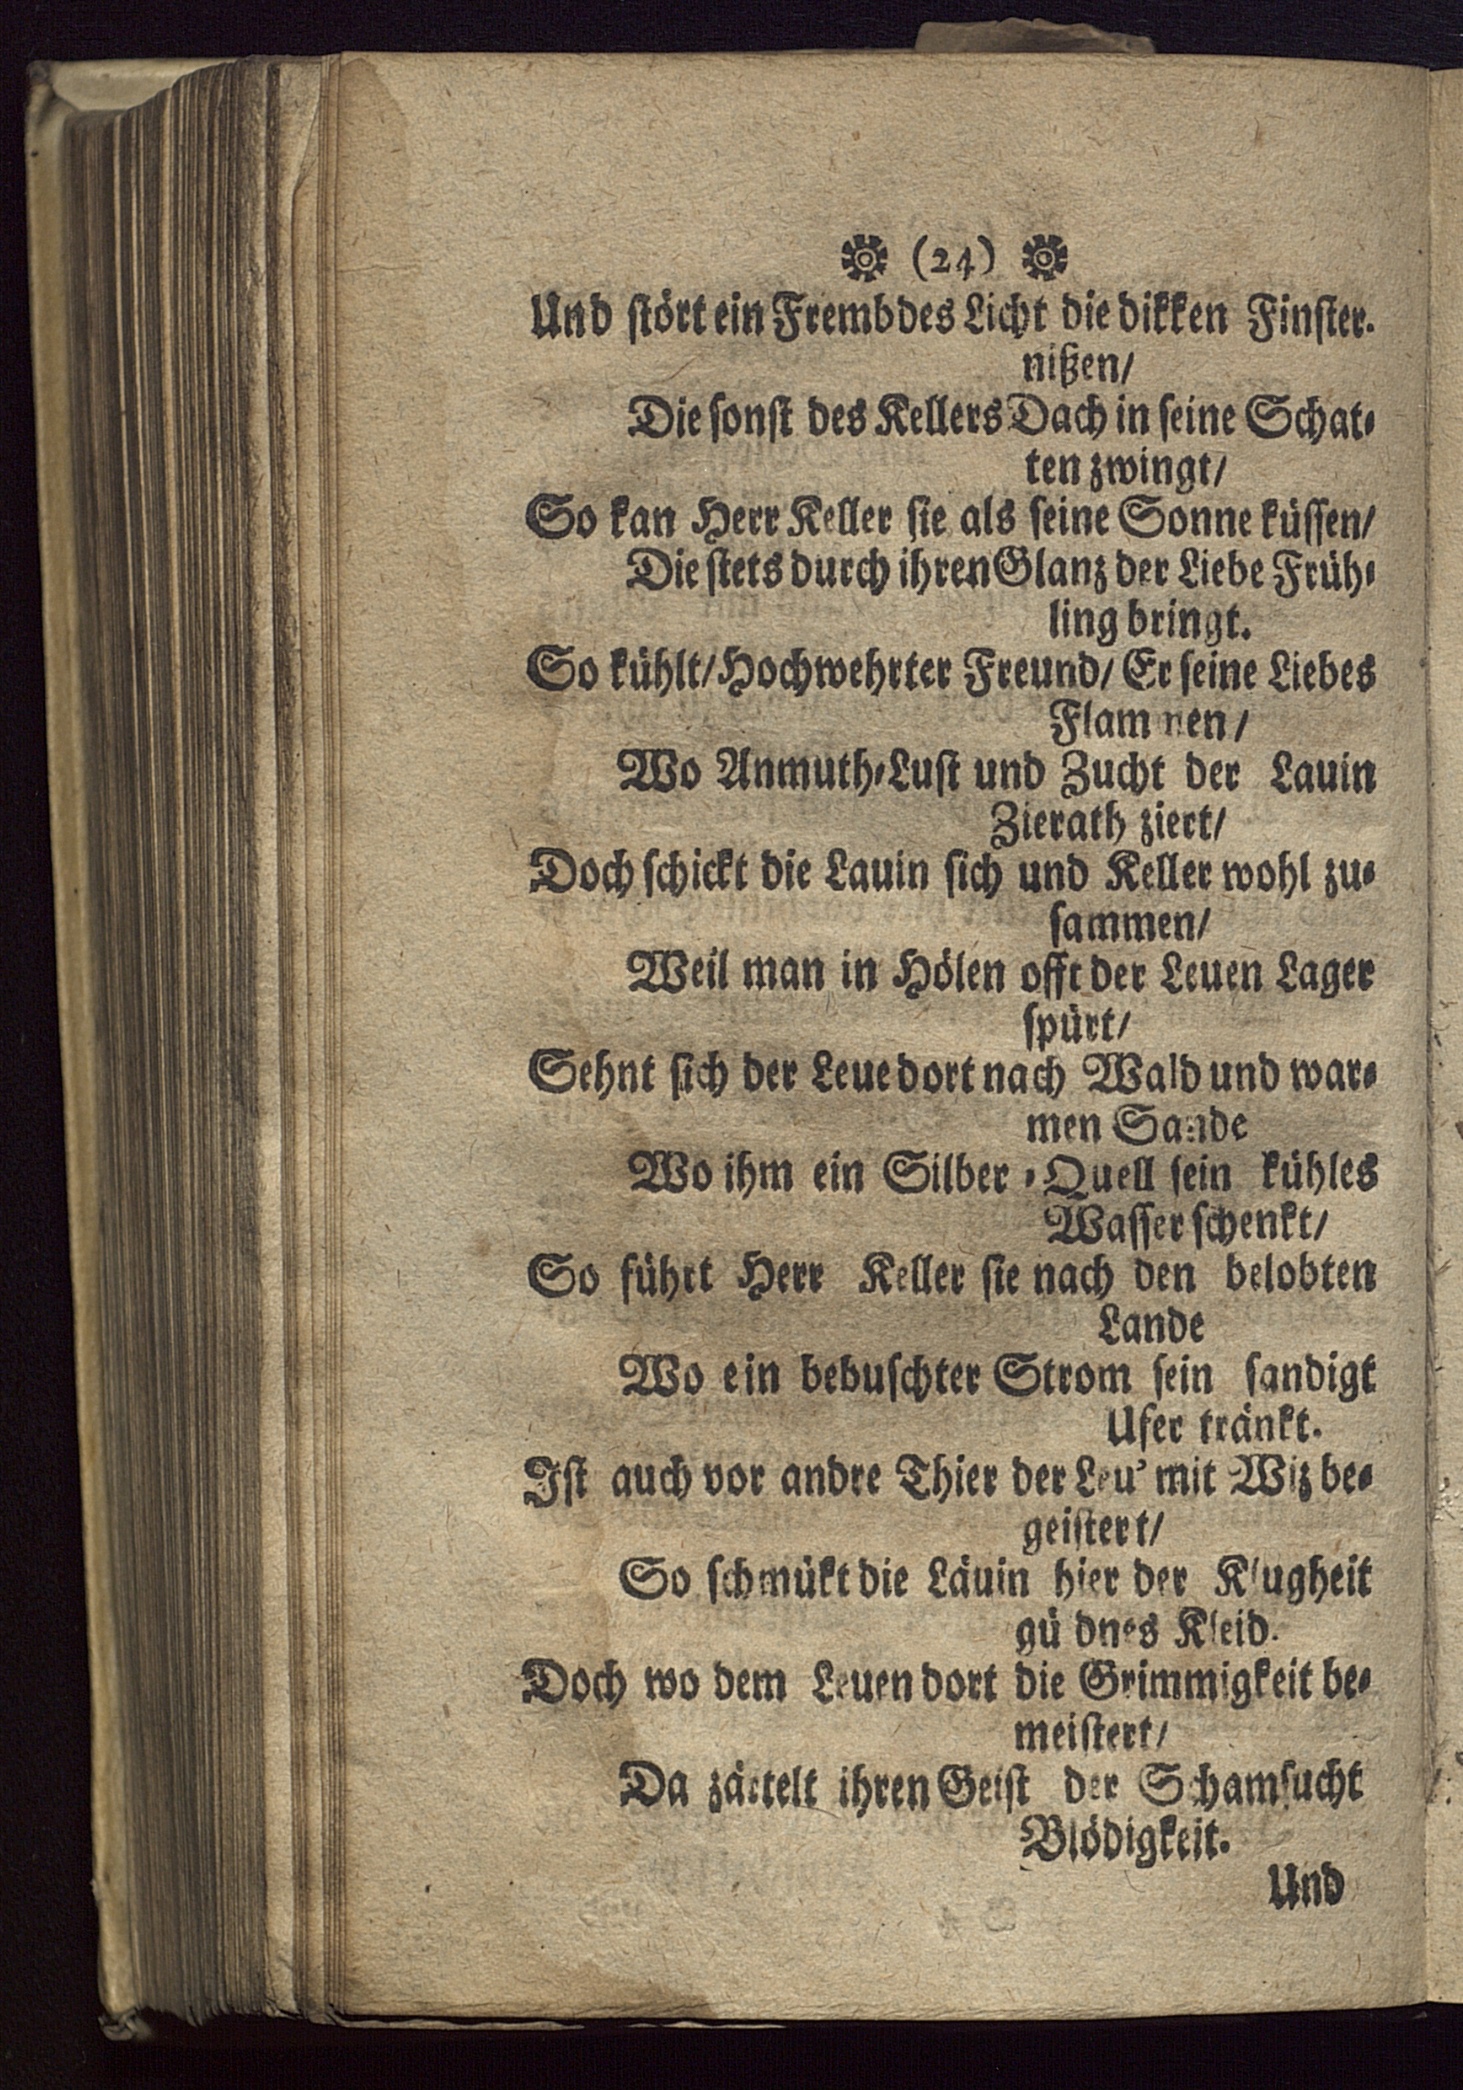 (24)
Und ſtört ein Frembdes Licht die dikken Finſter-
nißen/
Die ſonſt des Kellers Dach in ſeine Schat-
ten zwingt/
So kan Herr Keller ſie als ſeine Sonne küſſen/
Die ſtets durch ihren Glanz der Liebe Früh-
ling bringt.
So kühlt/ Hochwehrter Freund/ Er ſeine Liebes
Flammen/
Wo Anmuth-Luſt und Zucht der Lauin
Zierath ziert/
Doch ſchickt die Lauin ſich und Keller wohl zu-
ſammen/
Weil man in Hölen offt der Leuen Lager
ſpürt/
Sehnt ſich der Leue dort nach Wald und war-
men Sande
Wo ihm ein Silber-Quell ſein kühles
Waſſer ſchenkt/
So führt Herr Keller ſie nach den belobten
Lande
Wo ein bebuſchter Strom ſein ſandigt
Ufer tränkt.
Iſt auch vor andre Thier der Leu' mit Wiz be-
geiſtert/
So ſchmükt die Läuin hier der Klugheit
güldnes Kleid.
Doch wo dem Leuen dort die Grimmigkeit be-
meiſtert/
Da zärtelt ihren Geiſt der Schamſucht
Blödigkeit.
Und